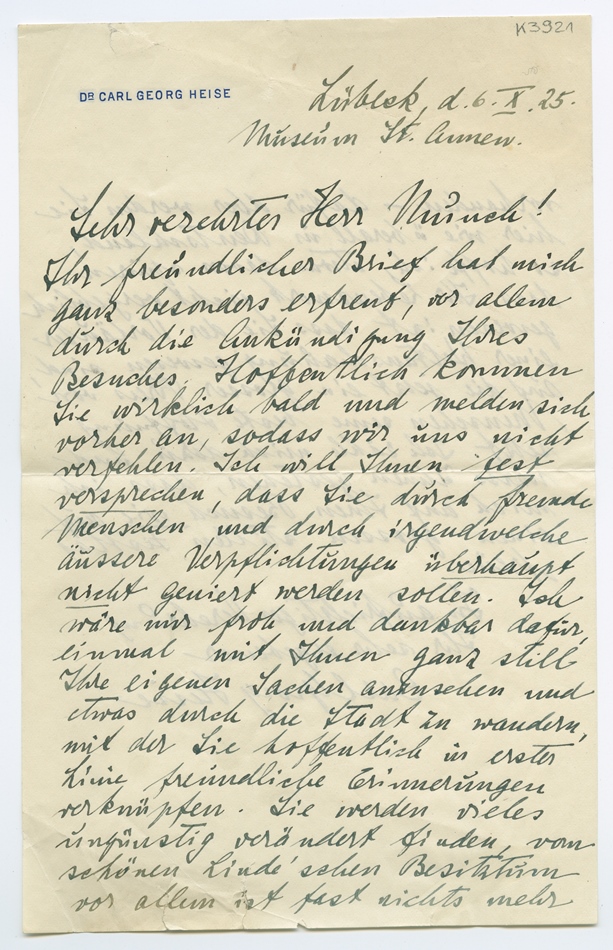 K3921
DR CARL GEORG HEISE
Lübeck, d. 6. X. 25.
Museum St. Annen.
Sehr verehrter Herr Munch!
Ihr freundlicher Brief hat mich
ganz besonders erfreut, vor allem
durch die Ankündigung Ihres
Besuches. Hoffentlich kommen
Sie wirklich bald und melden sich
vorher an, sodass wir uns nicht
verfehlen. Ich will Ihnen fest
versprechen, dass Sie durch fremde
Menschen und durch irgendwelche
äussere Verpflichtungen überhaupt
nicht geniert werden sollen. Ich
wäre nur froh und dankbar dafür,
einmal mit Ihnen ganz still
Ihre eigenen Sachen anzusehen und
etwas durch die Stadt zu wandern,
mit der Sie hoffentlich in erster
Linie freundliche Erinnerungen
verknüpfen. Sie werden vieles
ungünstig verändert finden, vom
schönen Linde'schen Besitztum
vor allem ist fast nichts mehr